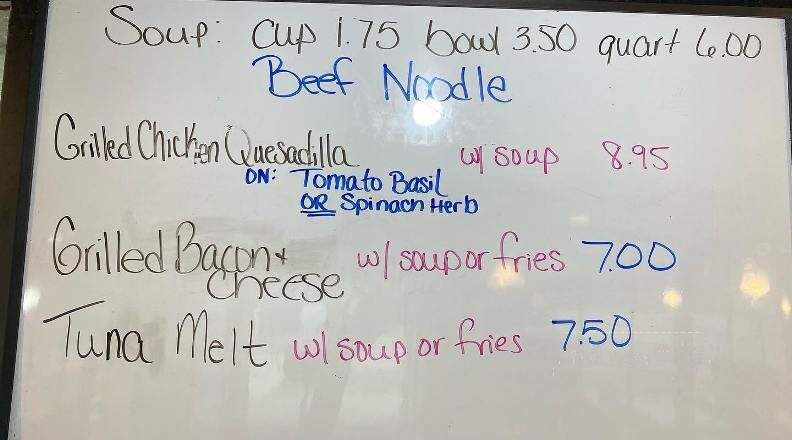 Soup: cup 1.75 bowl 3.50 quart 6.00
Beef Noodle
Grilled Chicken Quesadilla w/ soup 8.95
ON: Tomato Basil
OR Spinach Herb
Grilled Bacon + w/ soup or fries 7.00
Cheese
Tuna Melt w/ soup or fries 7.50